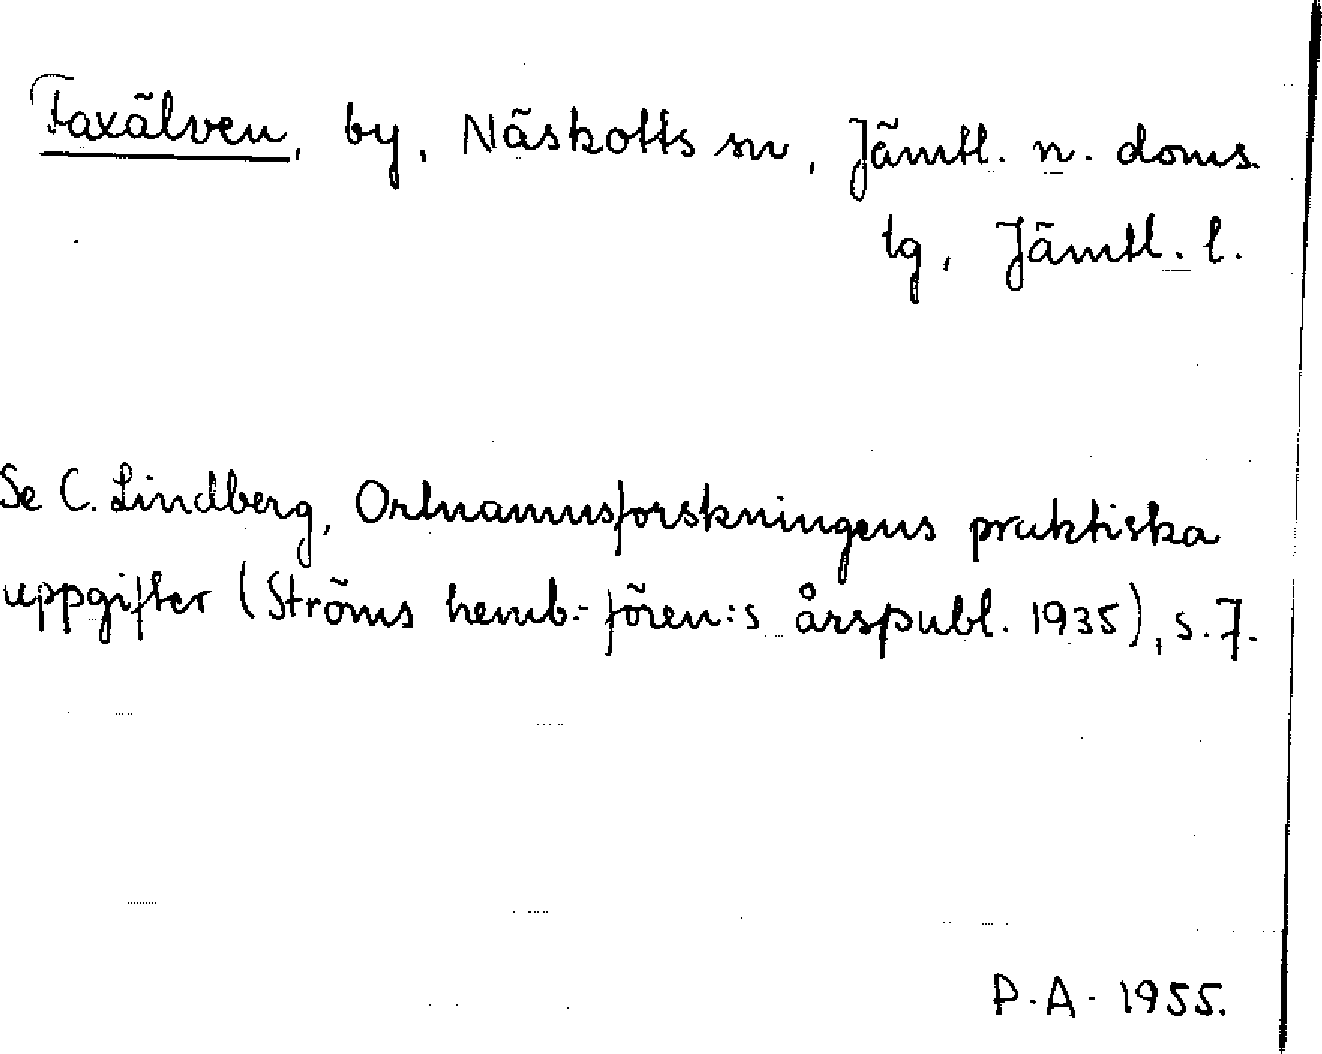 Faxälven, by, Näskotts sn, Jämtl. n. doms.
tg, Jämtl. l.
Se C. Lindberg, Ortnamnsforskningens praktiska
uppgifter (Ströms hemb.-fören:s årspubl. 1935), s. 7.
P. A. 1955.